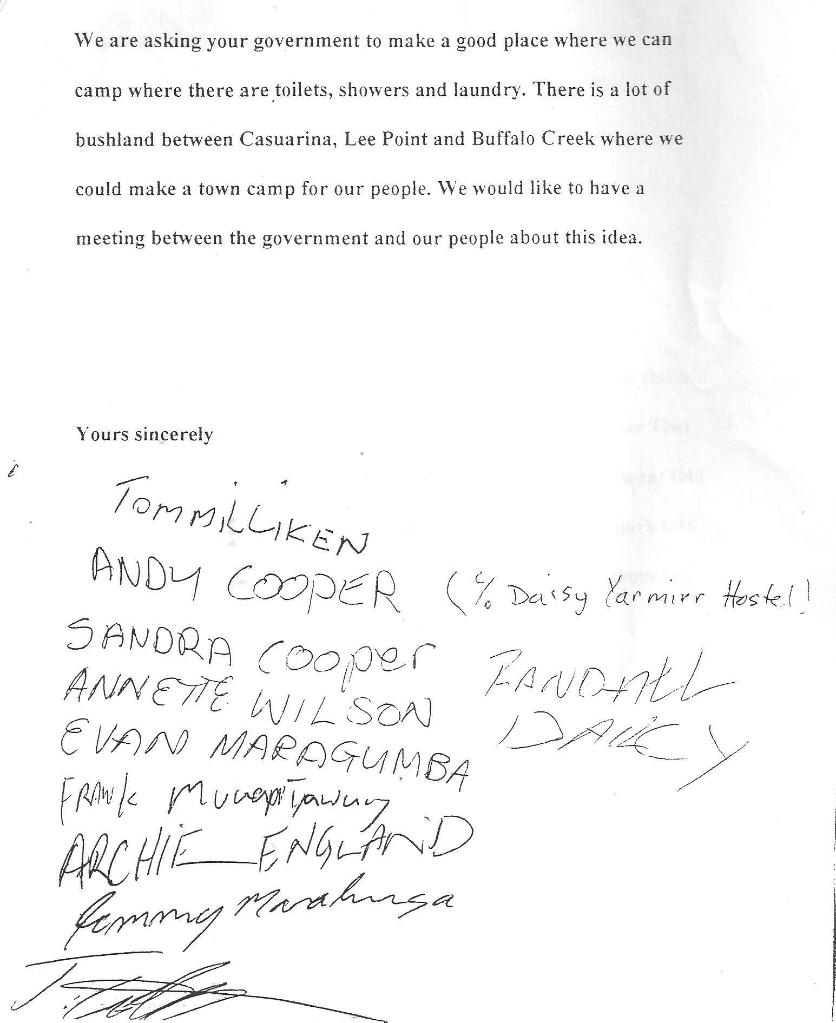 We are asking your government to make a good place where we can
camp where there are toilets, showers and laundry. There is a lot of
bushland between Casuarina, Lee Point and Buffalo Creek where we
could make a town camp for our people. We would like to have a
meeting between the government and our people about this idea.
Yours sincerely
TOM MILLIKEN
ANDY COOPER (℅ Daisy Yarmirr Hostel)
SANDRA Cooper
ANNETTE WILSON
RANDALL
DAILEY
EVAN MARAGUMBA
FRANK
ARCHIE ENGLAND